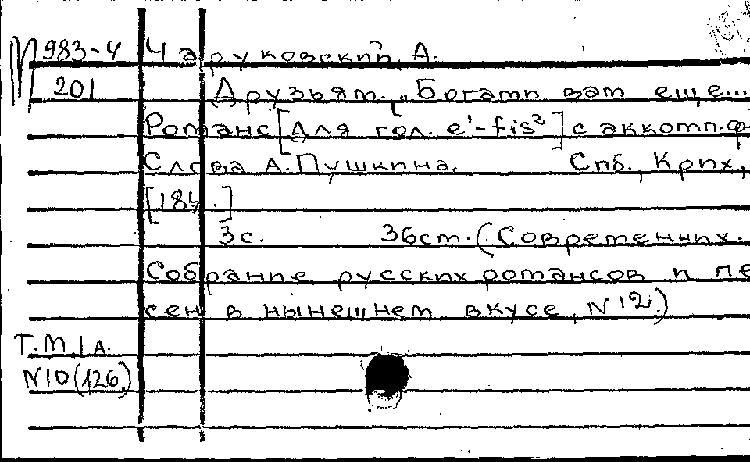 М 983-4 Чаруковский, А.
201 Друзьям. „Богами вам еще...
Романс [для гол. e¹-fis²] с аккомп.ф
Слова А.Пушкина. Спб., Крих,
[184 .]
3с. 36см. (Современных.
Собрание русских романсов и пе
сен в нынешнем вкусе, N 12.)
Т.М.1а.
N10(126)